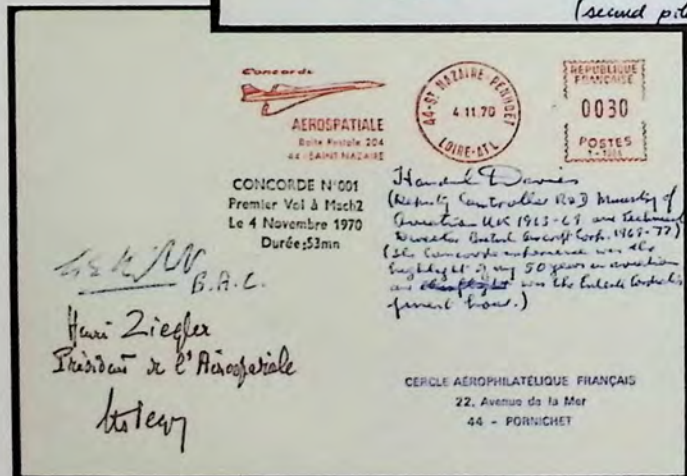 (second
Concorde
AEROSPATIALE
Boite Postale 204
44 - SAINT NAZAIRE
44-ST NAZAIRE-PENHOET
4 11.70
LOIRE-ATL
REPUBLIQUE
FRANCAISE
0030
POSTES
CONCORDE N°001
Premier Vol à Mach2
Le 4 Novembre 1970
Durée;53mn
Handel Davies
(Deputy Controller R&D Ministry of
Aviation UK 1963-69 and Technical
Director British Aircraft Corp. 1969-77)
(The Concorde experience was the
highlight of my 50 years in aviation
was the Entente Cordiale's
finest hour.)
B.A.C.
Henri Ziegler
Président de l'Aérospatiale
CERCLE AÉROPHILATÉLIQUE FRANÇAIS
22, Avenue de la Mer
44 - PORNICHET